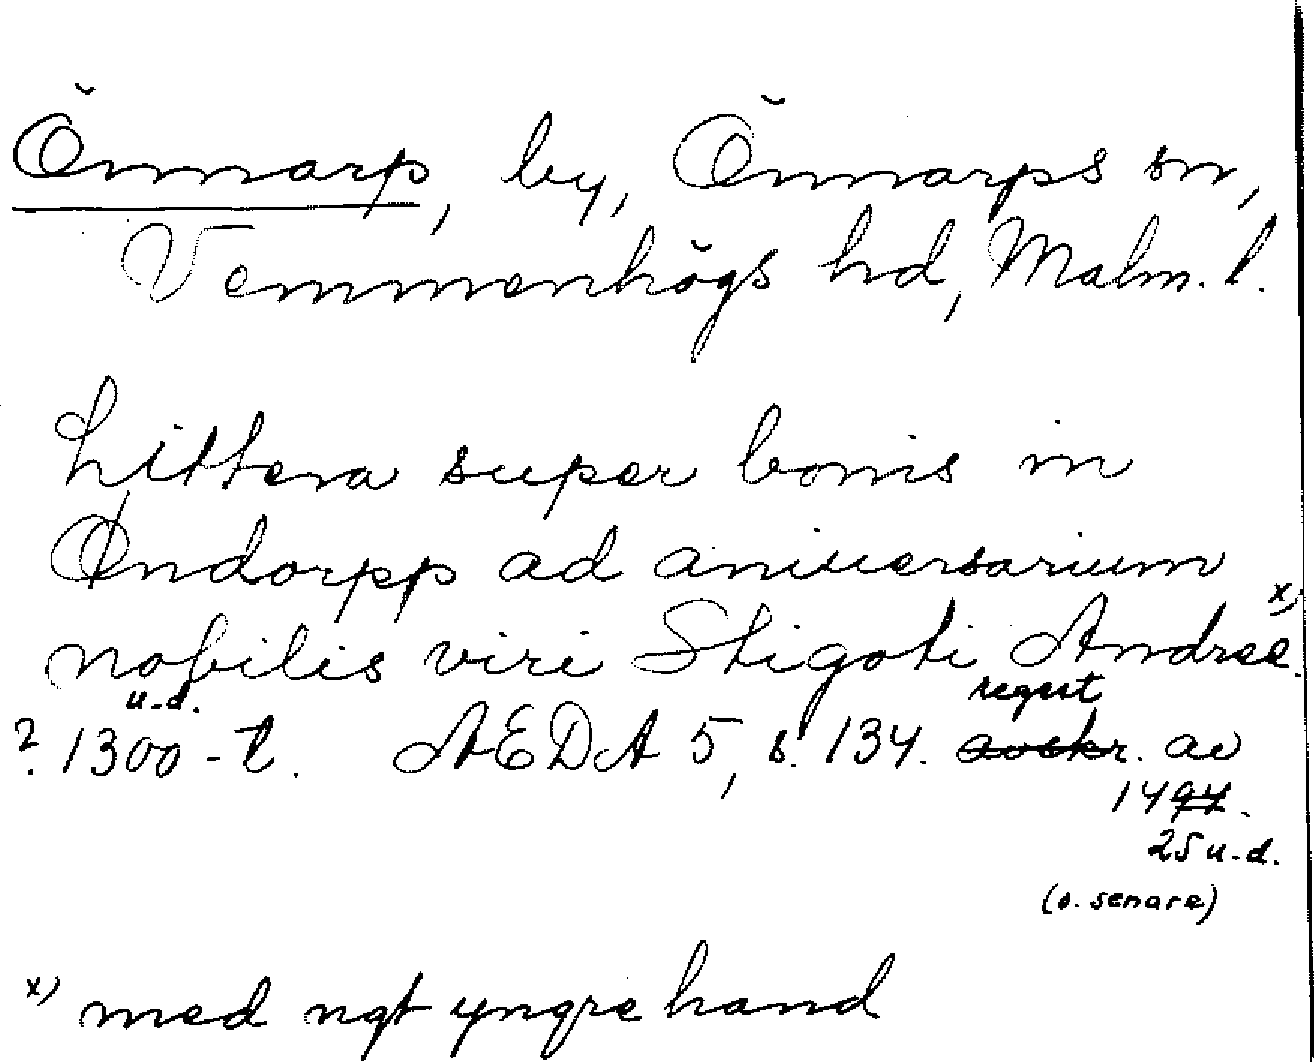 Önnarp, by, Önnarps sn,
Vemmenhögs hd, Malm. l.
Littera super bonis in
Øndorpp ad aniuersarium
nobilis viri Stigoti Andree x)
u.d. regest
? 1300-t. AEDA 5, s. 134. avskr. av
1494.
25 u.d.
(o. senare)
x) med ngt yngre hand